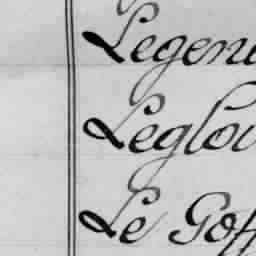 Legen
Leglou
Le Goff